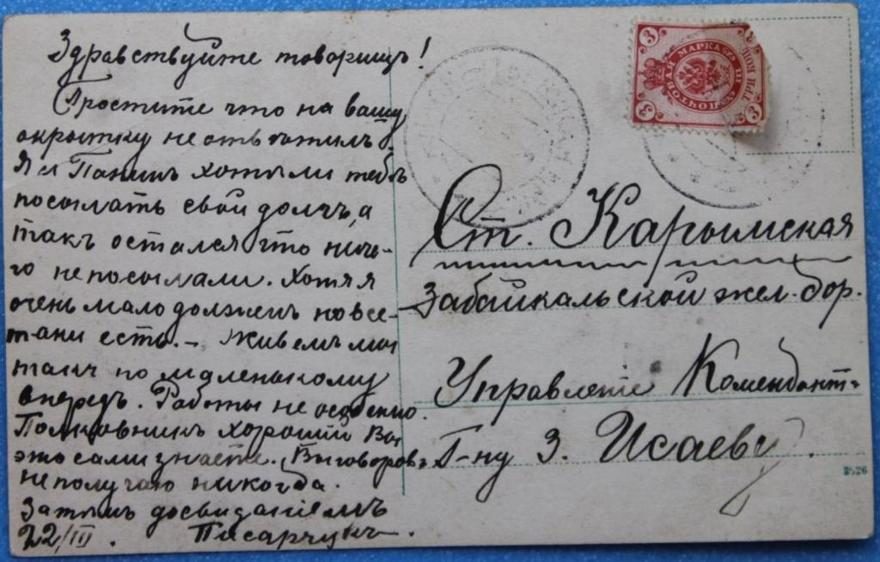 Здравствуйте товарищъ!
Простите что на вашу
окрытку не отвѣтилъ.
Я и Панинъ хотѣли тебѣ
посылать свой долгъ, а
такъ остался что ниче-
го не посылали. Хотя я
очень мало долженъ но все-
таки есть. – Живемъ мы
такъ по маленькому
впередъ. Работы не особенно
Полковникъ хорошій Вы
это сами знаете. Выговоровъ
не получаю никогда.
Затѣмъ досвиданіемъ
22/III. Писарчукъ.
3
3
3
Ст. Карымская
Забайкальской жел. дор.
Управленіе Комендант-
Г-ну З. Исаеву.